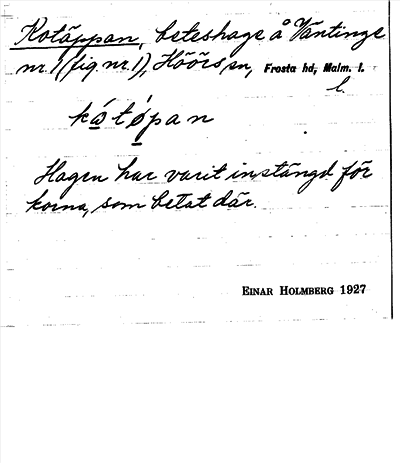 Kotäppan, beteshage å Väntinge
nr. 1 (fig. nr. 1), Höörs sn, Frosta hd, Malm. l.
l.
kátǫ́pan
Hagen har varit instängd för
korna, som betat där.
EINAR HOLMBERG 1927